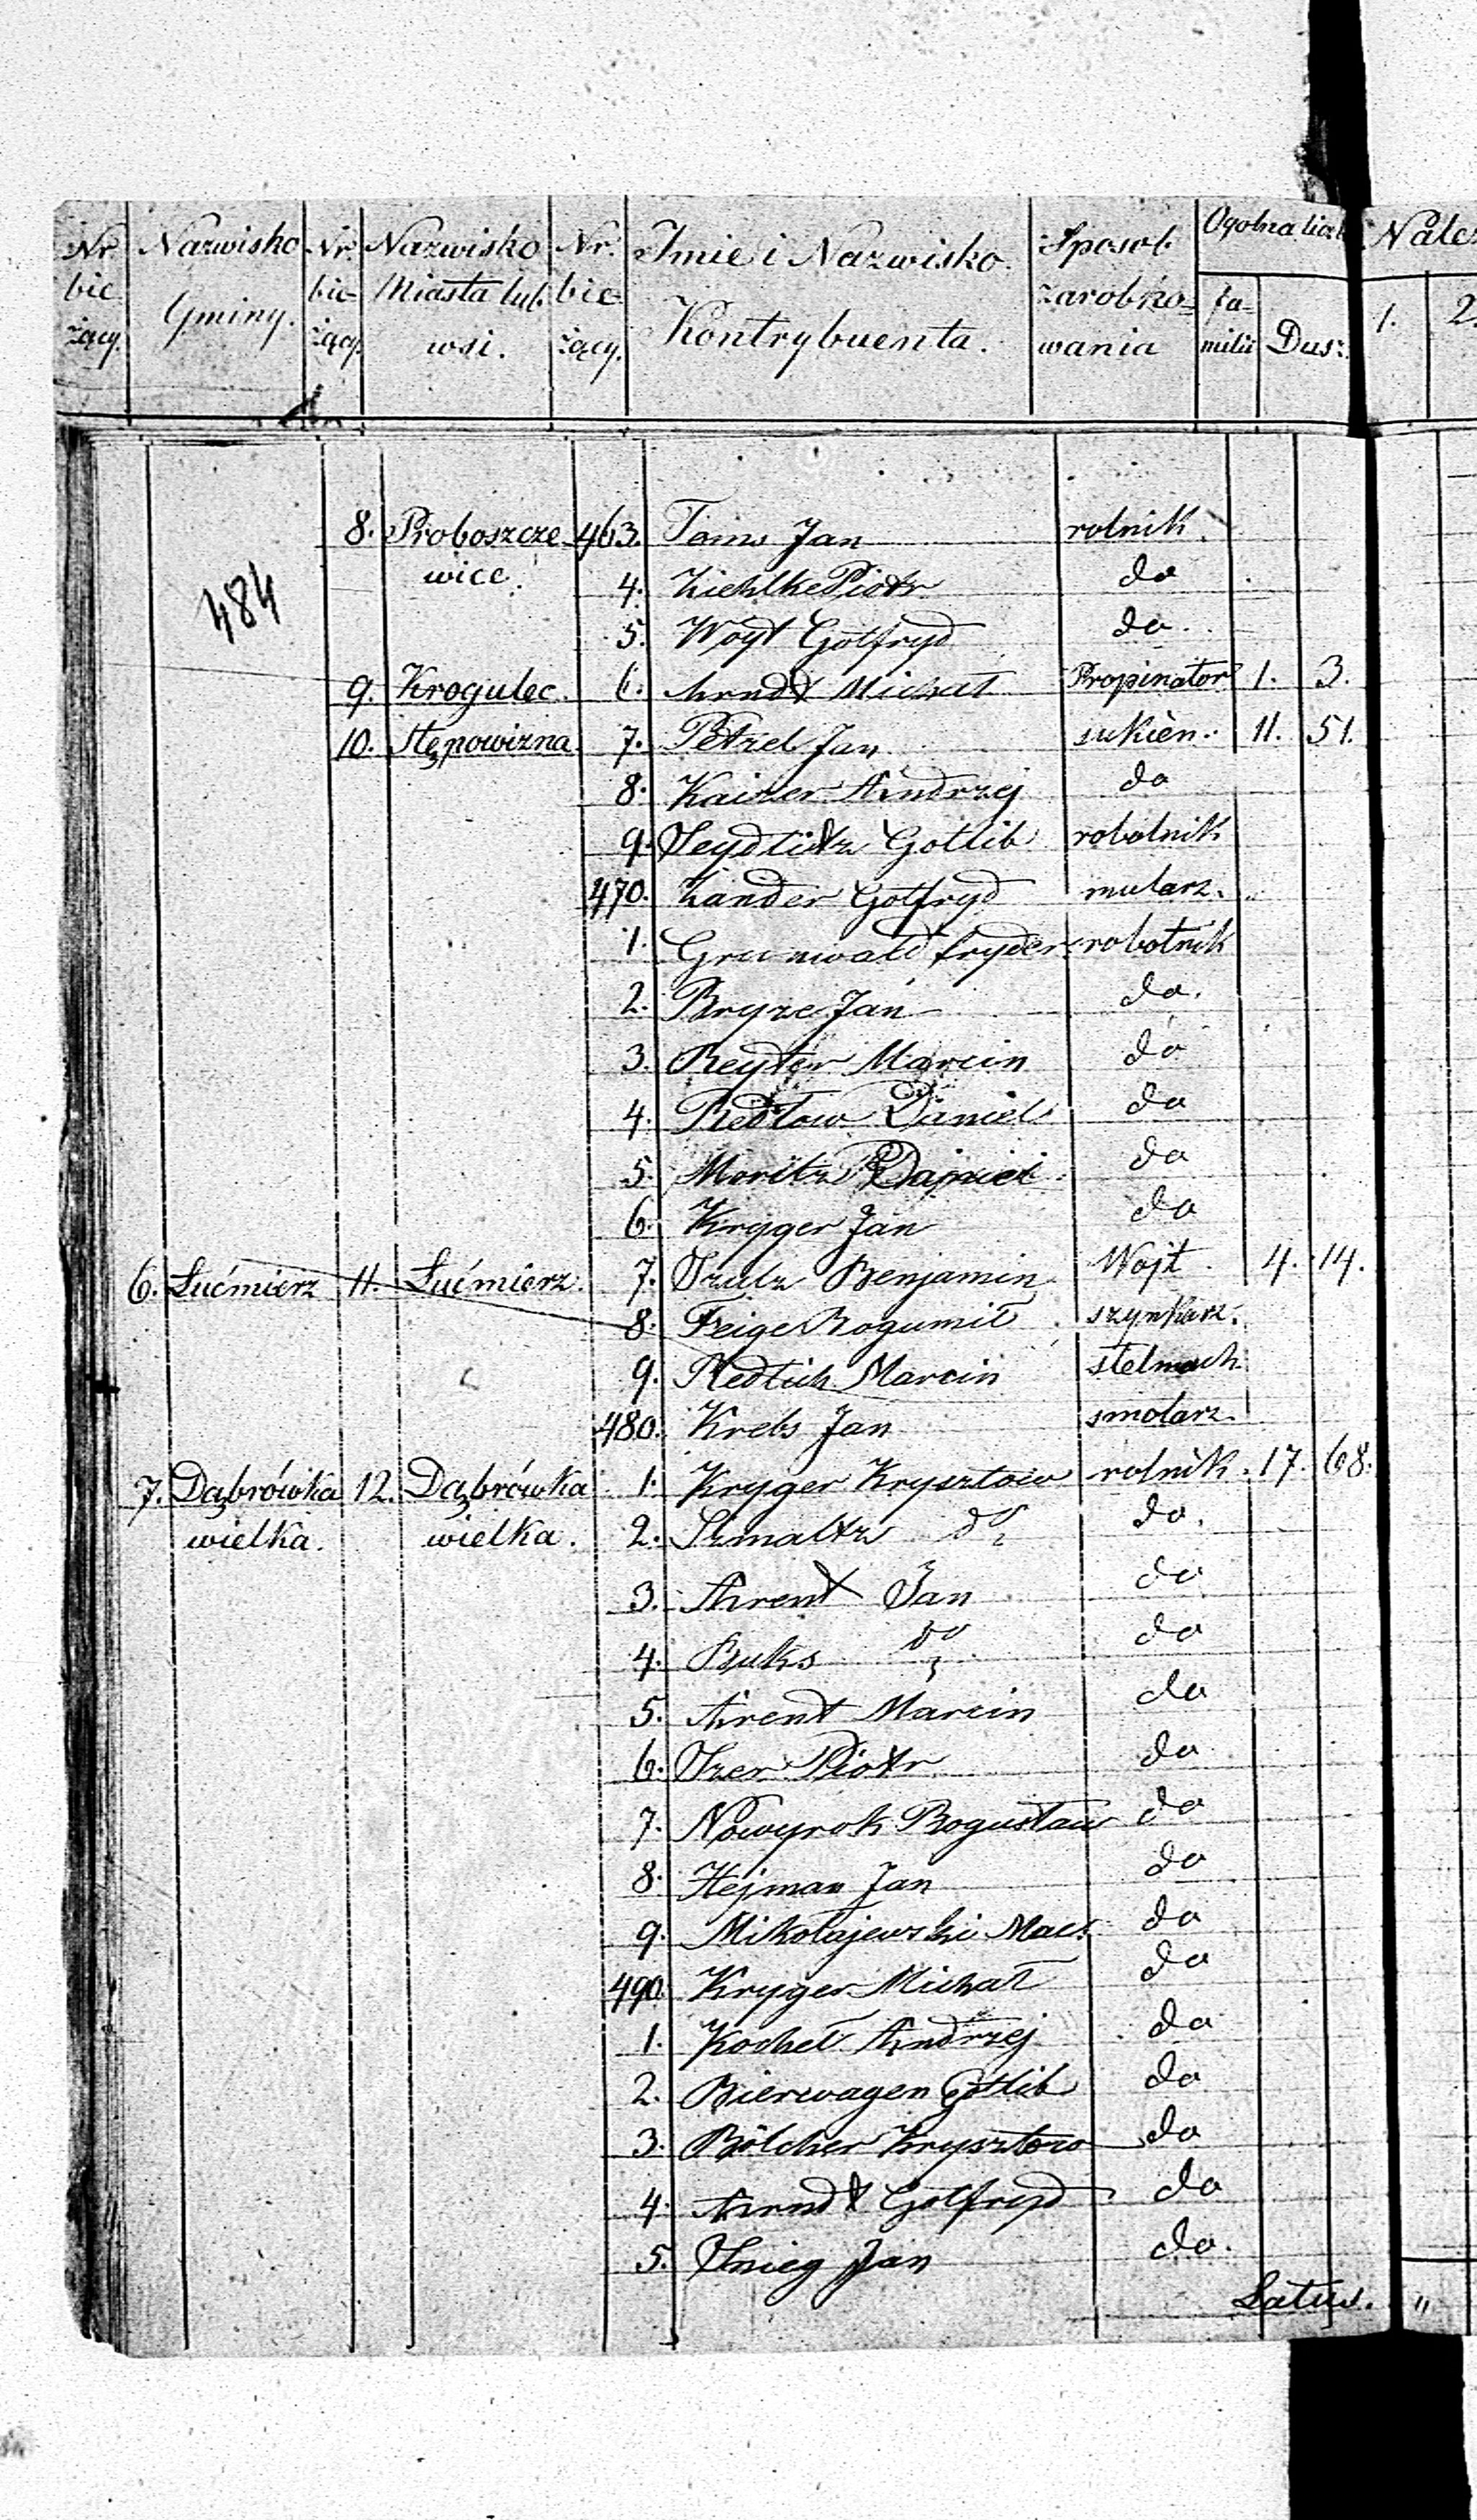 Nr. bie żący. Nazwisko Gminy. Nr. bie żący. Nazwisko Miasta lub wsi. Nr. bie żący. Imie i Nazwisko Kontrybuenta. Sposob zarobko= wania Ogolna liczb fa= milii Dusz. Nale 1. 2.
484
8. Proboszcze 463. Toms Jan rolnik.
wice. 4. Ziehlke Piotr do
5. Woyt Gotfryd do.
9. Krogulec. 6. Arndt Michał Propinator 1. 3.
10. Stępowizna 7. Petzel Jan sukien. 11. 51.
8. Kaizer Andrzej do
9. Seydlitz Gotlib robotnik
470. Zander Gotfryd mularz.
1. Grunwald fryder. robotnik
2. Bryze Jan do.
3. Reyter Marcin do
4. Redlow Daniel do
5. Moritz Daniel do
6. Kryger Jan do
6. Lućmierz 11. Lućmierz. 7. Szulz Benjamin Wojt. 4. 14.
8. Feige Bogumił szynkarz.
9. Redlich Marcin stelmach
480. Krebs Jan smolarz.
7. Dąbrówka 12. Dąbrówka 1. Kryger Krysztow rolnik. 17. 68.
wielka. wielka. 2. Szmaltz do do.
3. Arent Jan do
4. Buks do do
5. Arent Marcin do
6. Szer Piotr do
7. Nowyrok Bogusław do
8. Hejman Jan do
9. Mikołajewski Mac. do
490. Kryger Michał do
1. Kochel Andrzej do
2. Bierwagen Gotlib do
3. Bölcher Krysztow do
4. Arndt Gotfryd do
5. Snieg Jan do.
Latus. "